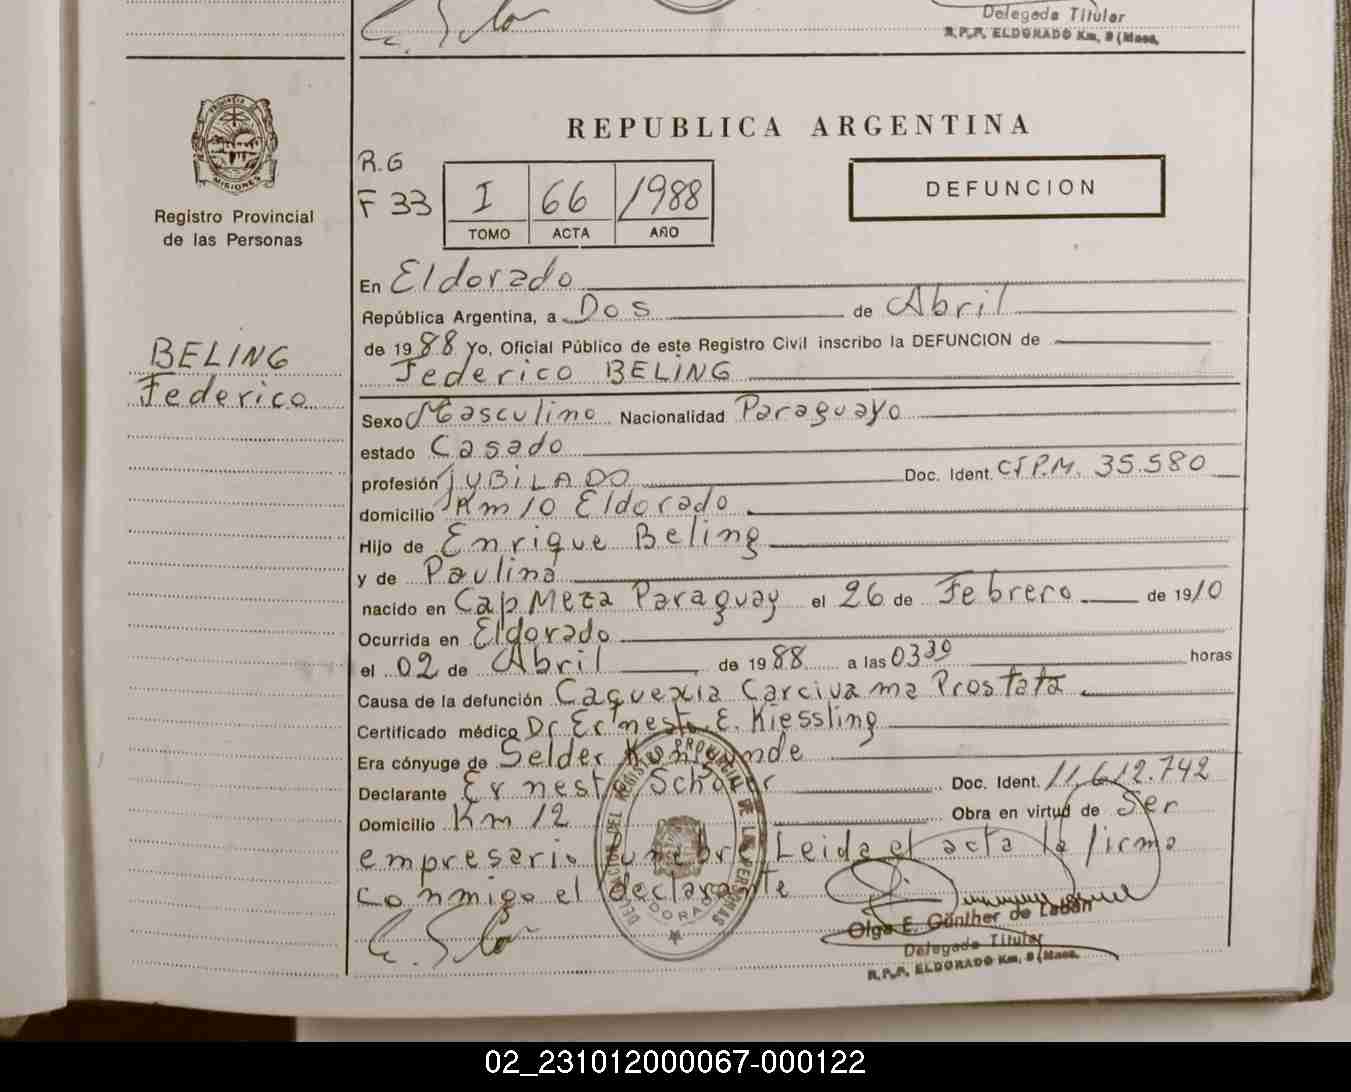 Delegada Titular
R.P.P. ELDORADO Km. 9 (Mnes.
PROVINCIA DE
MISIONES
Registro Provincial
de las Personas
REPUBLICA ARGENTINA
R.G
F 33
I 66 1988
TOMO ACTA AÑO
DEFUNCION
BELING
Federico
En Eldorado
República Argentina, a Dos de Abril
de 1988 Yo, Oficial Público de este Registro Civil inscribo la DEFUNCION de
Federico BELING
Sexo Masculino Nacionalidad Paraguayo
estado Casado
profesión JUBILADO Doc. Ident. CIP.M. 35.580
domicilio Km 10 Eldorado
Hijo de Enrique Beling
y de Paulina
nacido en Cap Meza Paraguay el 26 de Febrero de 1910
Ocurrida en Eldorado
el 02 de Abril de 1988 a las 0330 horas
Causa de la defunción Caquexia Carcivama Prostata
Certificado médico Dr Ernesto E. Kiessling
Era cónyuge de Selder Kunigunde
Declarante Ernesto Schafer Doc. Ident. 11.612.742
Domicilio Km 12 Obra en virtud de Ser
empresario funebre Leida el acta la firma
conmigo el declarante
Olga E. Günther de Laban
Delegada Titular
R.P.P. ELDORADO Km. 9 (Mnes.
02_231012000067-000122